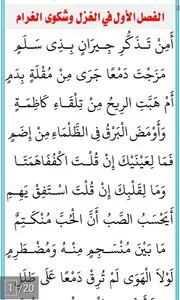 الفصل الأول في الغزل وشكوى الغرام
أَمِنْ تَذَكُّرِ جِيرَانٍ بِذِى سَلَمٍ
مَزَجْتَ دَمْعًا جَرَى مِنْ مُقْلَةٍ بِدَمِ
أَمْ هَبَّتِ الرِيحُ مِنْ تِلْقَاءِ كَاظِمَةٍ
وَأَوْمَضَ الْبَرْقُ فِى الظَّلْمَاءِ مِنْ إِضَمِ
فَمَا لِعَيْنَيْكَ إِنْ قُلْتَ اكْفُفَاهَمَتَا
وَمَا لِقَلْبِكَ إِنْ قُلْتَ اسْتَفِقْ يَهِمِ
أَيَحْسَبُ الصَّبُّ أَنَّ الْحُبَّ مُنْكَتِمٌ
مَا بَيْنَ مُنْسَجِمٍ مِنْهُ وَمُضْطَرِمِ
لَوْلَا الْهَوَى لَمْ تُرِقْ دَمْعًا عَلَى طَلَلٍ
1 / 20